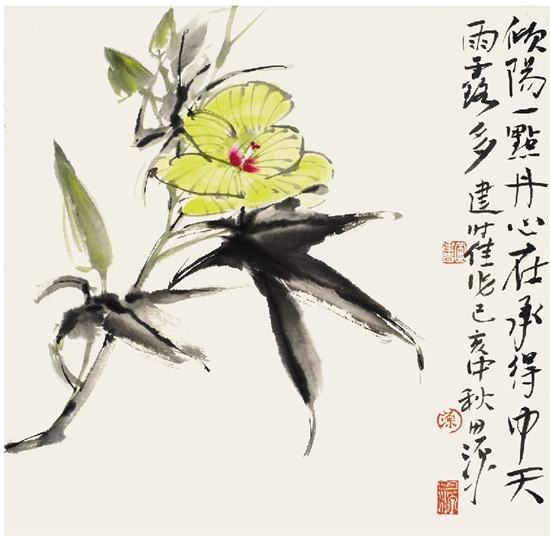 倾陽一點丹心在承得中天
雨露多 建 佳 己亥中秋田源